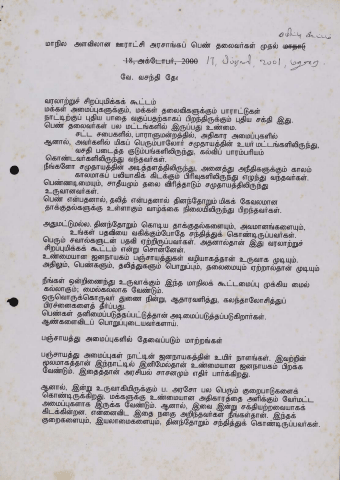 மாநில அளவிலான ஊராட்சி அரசாங்கப் பெண் தலைவர்கள் முதல் மாநாடு
18, அக்டோபர், 2000
வே. வசந்தி தேவி
வரலாற்றுச் சிறப்புமிக்கக் கூட்டம்
மக்கள் அமைப்புகளுக்கும், மக்கள் தலைவிகளுக்கும் பாராட்டுகள்
நாட்டிற்குப் புதிய பாதை வகுப்பதற்காகப் பிறந்திருக்கும் புதிய சக்தி இது.
பெண் தலைவர்கள் பல மட்டங்களில் இருப்பது உண்மை.
சட்ட சபைகளில், பாராளுமன்றத்தில், அதிகார அமைப்புகளில்
ஆனால், அவர்களில் மிகப் பெரும்பாலோர் சமுதாயத்தின் உயர் மட்டங்களிலிருந்து,
வசதி படைத்த குடும்பங்களிலிருந்து, கல்விப் பாரம்பரியம்
கொண்டவர்களிலிருந்து வந்தவர்கள்.
நீங்களோ சமுதாயத்தின் அடித்தளத்திலிருந்து, அனைத்து அநீதிகளுக்கும் காலம்
காலமாகப் பலியாகிக் கிடக்கும் பிரிவுகளிலிருந்து எழுந்து வந்தவர்கள்.
பெண்ணடிமையும், சாதீயமும் தலை விரித்தாடும் சமுதாயத்திலிருந்து
உருவானவர்கள்.
பெண் என்பதனால், தலித் என்பதனால் தினந்தோறும் மிகக் கேவலமான
தாக்குதல்களுக்கு உள்ளாகும் வாழ்க்கை நிலையில் பிறந்தவர்கள்.
அதுமட்டுமல்ல. தினந்தோறும் கொடிய தாக்குதல்களையும், அவமானங்களையும்,
உங்கள் பதவியை வகிக்கும்போதே சந்தித்துக் கொண்டிருப்பவர்கள்.
பெரும் சவால்களுடன் பதவி ஏற்றிருப்பவர்கள். அதனால்தான் இது வரலாற்றுச்
சிறப்புமிக்கக் கூட்டம் என்று சொன்னேன்.
உண்மையான ஜனநாயகம் பஞ்சாயத்துகள் வழியாகத்தான் உருவாக முடியும்.
அதிலும், பெண்களும், தலித்துகளும் பொறுப்பும், தலைமையும் ஏற்றால்தான் முடியும்
நீங்கள் ஒன்றிணைந்து உருவாக்கும் இந்த மாநிலக் கூட்டமைப்பு முக்கிய மைல்
கல்லாகும்; மைல்கல்லாக வேண்டும்.
ஒருவொருக்கொருவர் துணை நின்று, ஆதரவளித்து, கலந்தாலோசித்துப்
பிரச்சனைகளைத் தீர்ப்பது.
பெண்கள் தனிமைப்படுத்தப்பட்டுத்தான் அடிமைப்படுத்தப்படுகிறார்கள்.
ஆண்களைவிடப் பொறுப்புடையவர்களாய்.
பஞ்சாயத்து அமைப்புகளில் தேவைப்படும் மாற்றங்கள்
பஞ்சாயத்து அமைப்புகள் நாட்டின் ஜனநாயகத்தின் உயிர் நாளங்கள். இவற்றின்
மூலமாகத்தான் இந்நாட்டில் இனிமேல்தான் உண்மையான ஜனநாயகம் பிறக்க
வேண்டும். இதைத்தான் அரசியல் சாசனமும் எதிர் பார்க்கிறது.
ஆனால், இன்று உருவாகியிருக்கும் ப. அரசோ பல பெரும் குறைபாடுகளைக்
கொண்டிருக்கிறது. மக்களுக்கு உண்மையான அதிகாரத்தை அளிக்கும் வேர்மட்ட
அமைப்புகளாக இருக்க வேண்டும். ஆனால், இவை இன்று சக்தியற்றவையாகக்
கிடக்கின்றன. என்னைவிட இதை நன்கு அறிந்தவர்கள் நீங்கள்தான். இந்தக்
குறைகளையும், இயலாமைகளையும், தினந்தோறும் சந்தித்துக் கொண்டிருப்பவர்கள்.